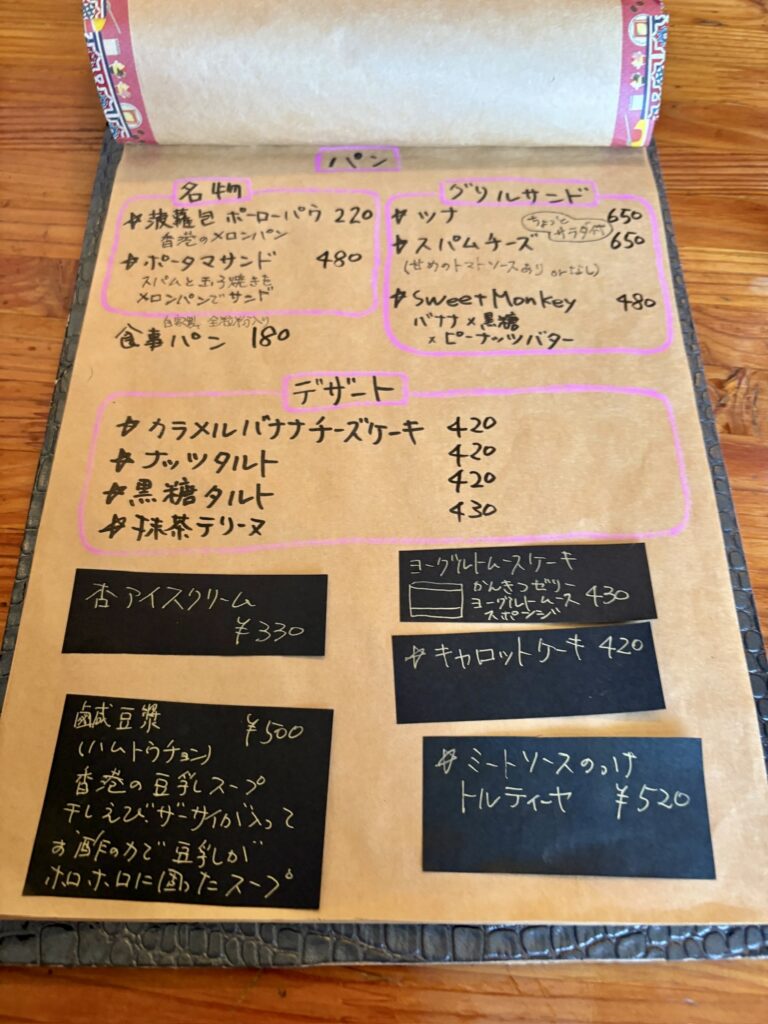 パン
名物
☆菠蘿包 ボーローパウ 220
香港のメロンパン
☆ポータマサンド 480
スパムと玉子焼きを
メロンパンでサンド
自家製 全粒粉入り
食事パン 180
グリルサンド
☆ツナ 650
ちょこっとサラダ付
☆スパムチーズ 650
(甘めのトマトソースあり or なし)
☆Sweet Monkey 480
バナナ×黒糖
×ピーナッツバター
デザート
☆カラメルバナナチーズケーキ 420
☆ナッツタルト 420
☆黒糖タルト 420
☆抹茶テリーヌ 430
杏アイスクリーム
¥330
ヨーグルトムースケーキ
かんきつゼリー
ヨーグルトムース 430
スポンジ
☆キャロットケーキ 420
鹹豆漿 ¥500
(ハムトウチョン)
香港の豆乳スープ
干しえびザーサイが入って
お酢の力で豆乳が
ホロホロに固ったスープ。
☆ミートソースのっけ
トルティーヤ ¥520